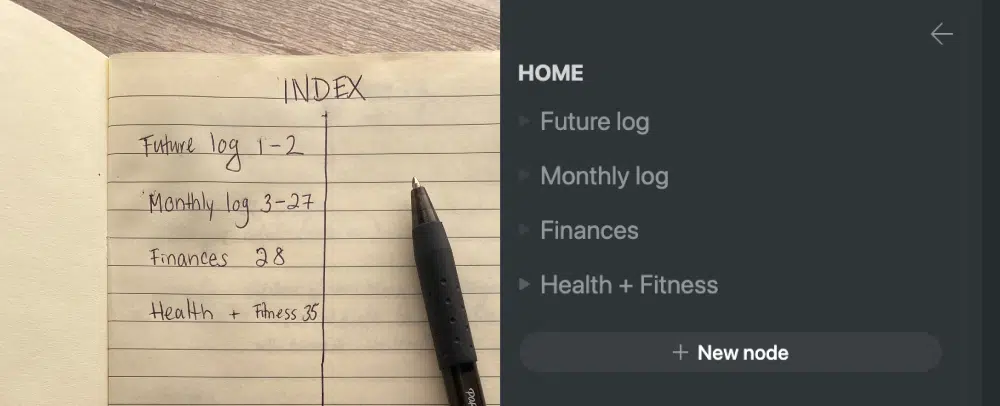 INDEX
Future log 1-2
Monthly log 3-27
Finances 28
Health + Fitness 35
HOME
Future log
Monthly log
Finances
Health + Fitness
+ New node